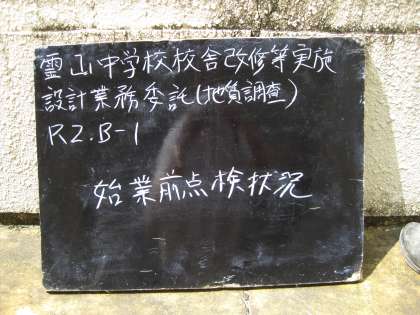 霊山中学校校舎改修等実施
設計業務委託(地質調査)
R2.B-1
始業前点検状況